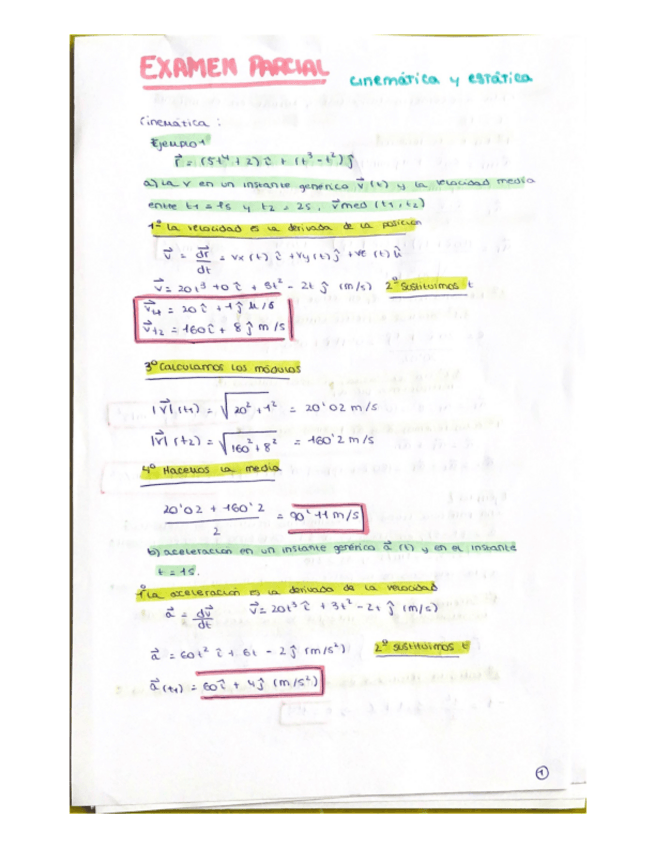 EXAMEN PARCIAL cinemática y estática
Cinemática :
Ejemplo 1
r⃗ = (5t⁴ + 2) î + (t³ - t²) ĵ
a) La v en un instante genérico v⃗ (t) y la velocidad media
entre t1 = 1s y t2 = 2s. v⃗med (t1, t2)
1º La velocidad es la derivada de la posición
v⃗ = dr⃗/dt = vx (t) î + vy (t) ĵ + vz (t) k̂
v⃗ = 20t³ + 0 î + 3t² - 2t ĵ (m/s) 2º Sustituimos t
v⃗t1 = 20 î + 1 ĵ m/s
v⃗t2 = 160 î + 8 ĵ m/s
3º Calculamos los módulos
|v⃗| (t1) = √20² + 1² = 20'02 m/s
|v⃗| (t2) = √160² + 8² = 160'2 m/s
4º Hacemos la media
20'02 + 160'2 / 2 = 90'11 m/s
b) aceleración en un instante genérico a⃗ (t) y en el instante
t = 1s.
1º La aceleración es la derivada de la velocidad
a⃗ = dv⃗/dt v⃗ = 20t³ î + 3t² - 2t ĵ (m/s)
a⃗ = 60t² î + 6t - 2 ĵ (m/s²) 2º Sustituimos t
a⃗ (t1) = 60 î + 4 ĵ (m/s²)
1